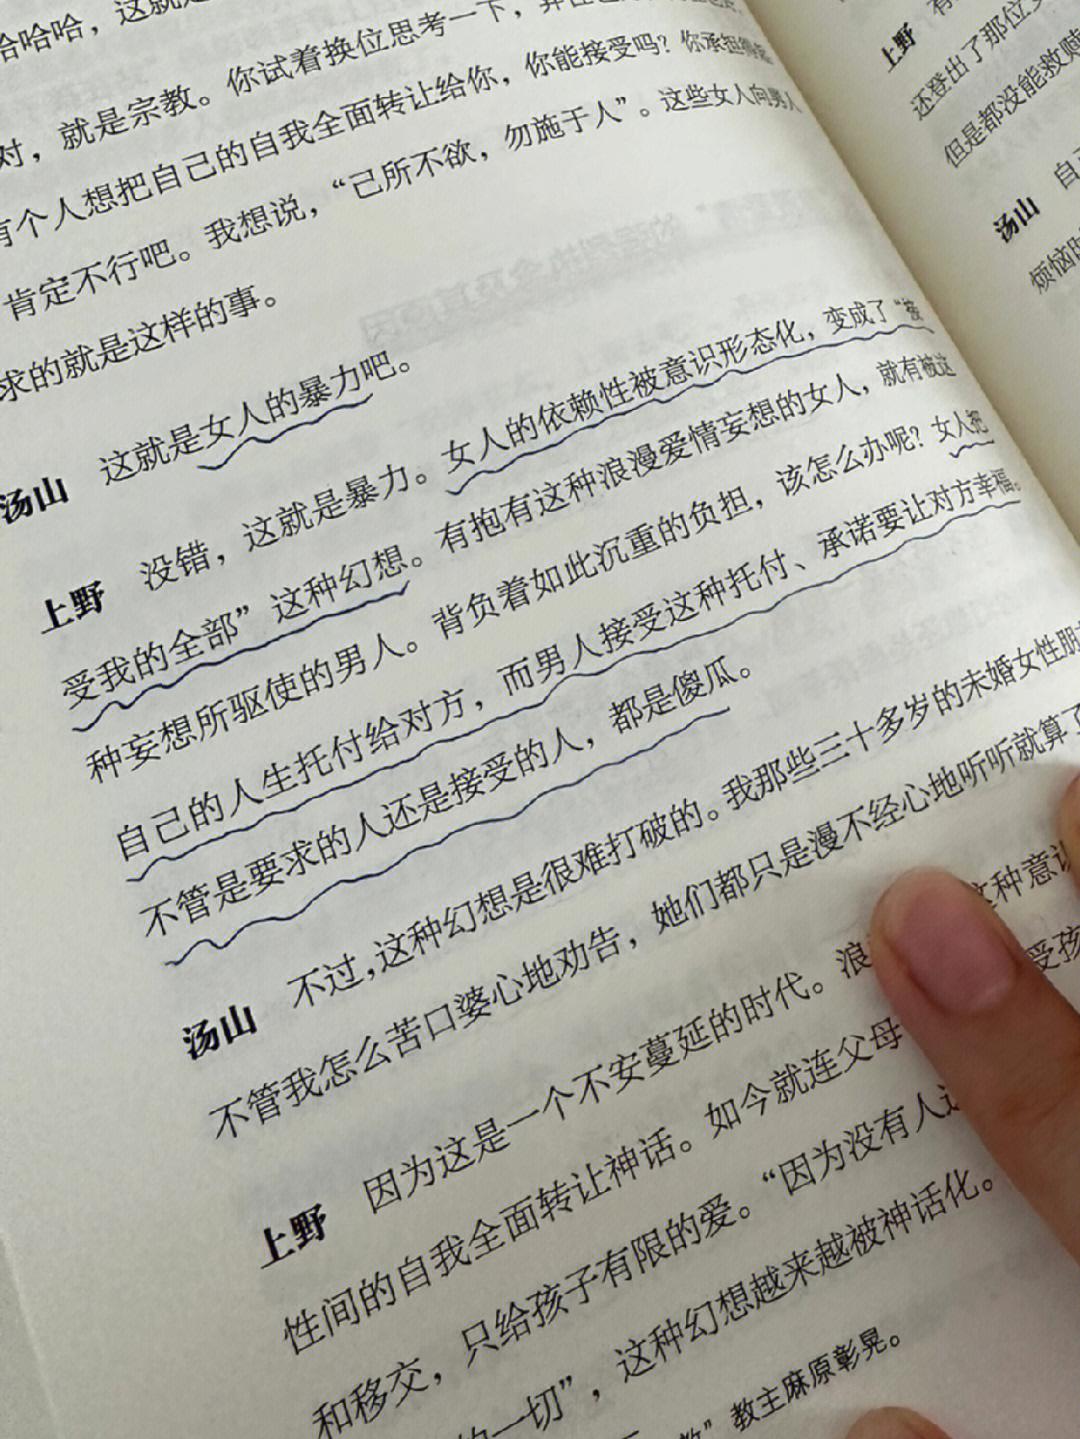 哈哈哈，这就是
对，就是宗教。你试着换位思考一下，
有个人想把自己的自我全面转让给你，你能接受吗？你承担得
肯定不行吧。我想说，“己所不欲，勿施于人”。这些女人向男人
求的就是这样的事。
汤山 这就是女人的暴力吧。
上野 没错，这就是暴力。女人的依赖性被意识形态化，变成了“接
受我的全部”这种幻想。有抱有这种浪漫爱情妄想的女人，就有被这
种妄想所驱使的男人。背负着如此沉重的负担，该怎么办呢？女人把
自己的人生托付给对方，而男人接受这种托付、承诺要让对方幸福。
不管是要求的人还是接受的人，都是傻瓜。
汤山 不过，这种幻想是很难打破的。我那些三十多岁的未婚女性朋
不管我怎么苦口婆心地劝告，她们都只是漫不经心地听听就算了
上野 因为这是一个不安蔓延的时代。浪 这种意识
性间的自我全面转让神话。如今就连父母 受孩
和移交，只给孩子有限的爱。“因为没有人这
的一切”，这种幻想越来越被神话化。
教”教主麻原彰晃。
上野 有
还登出了那位
但是都没能救赎
汤山 自
烦恼